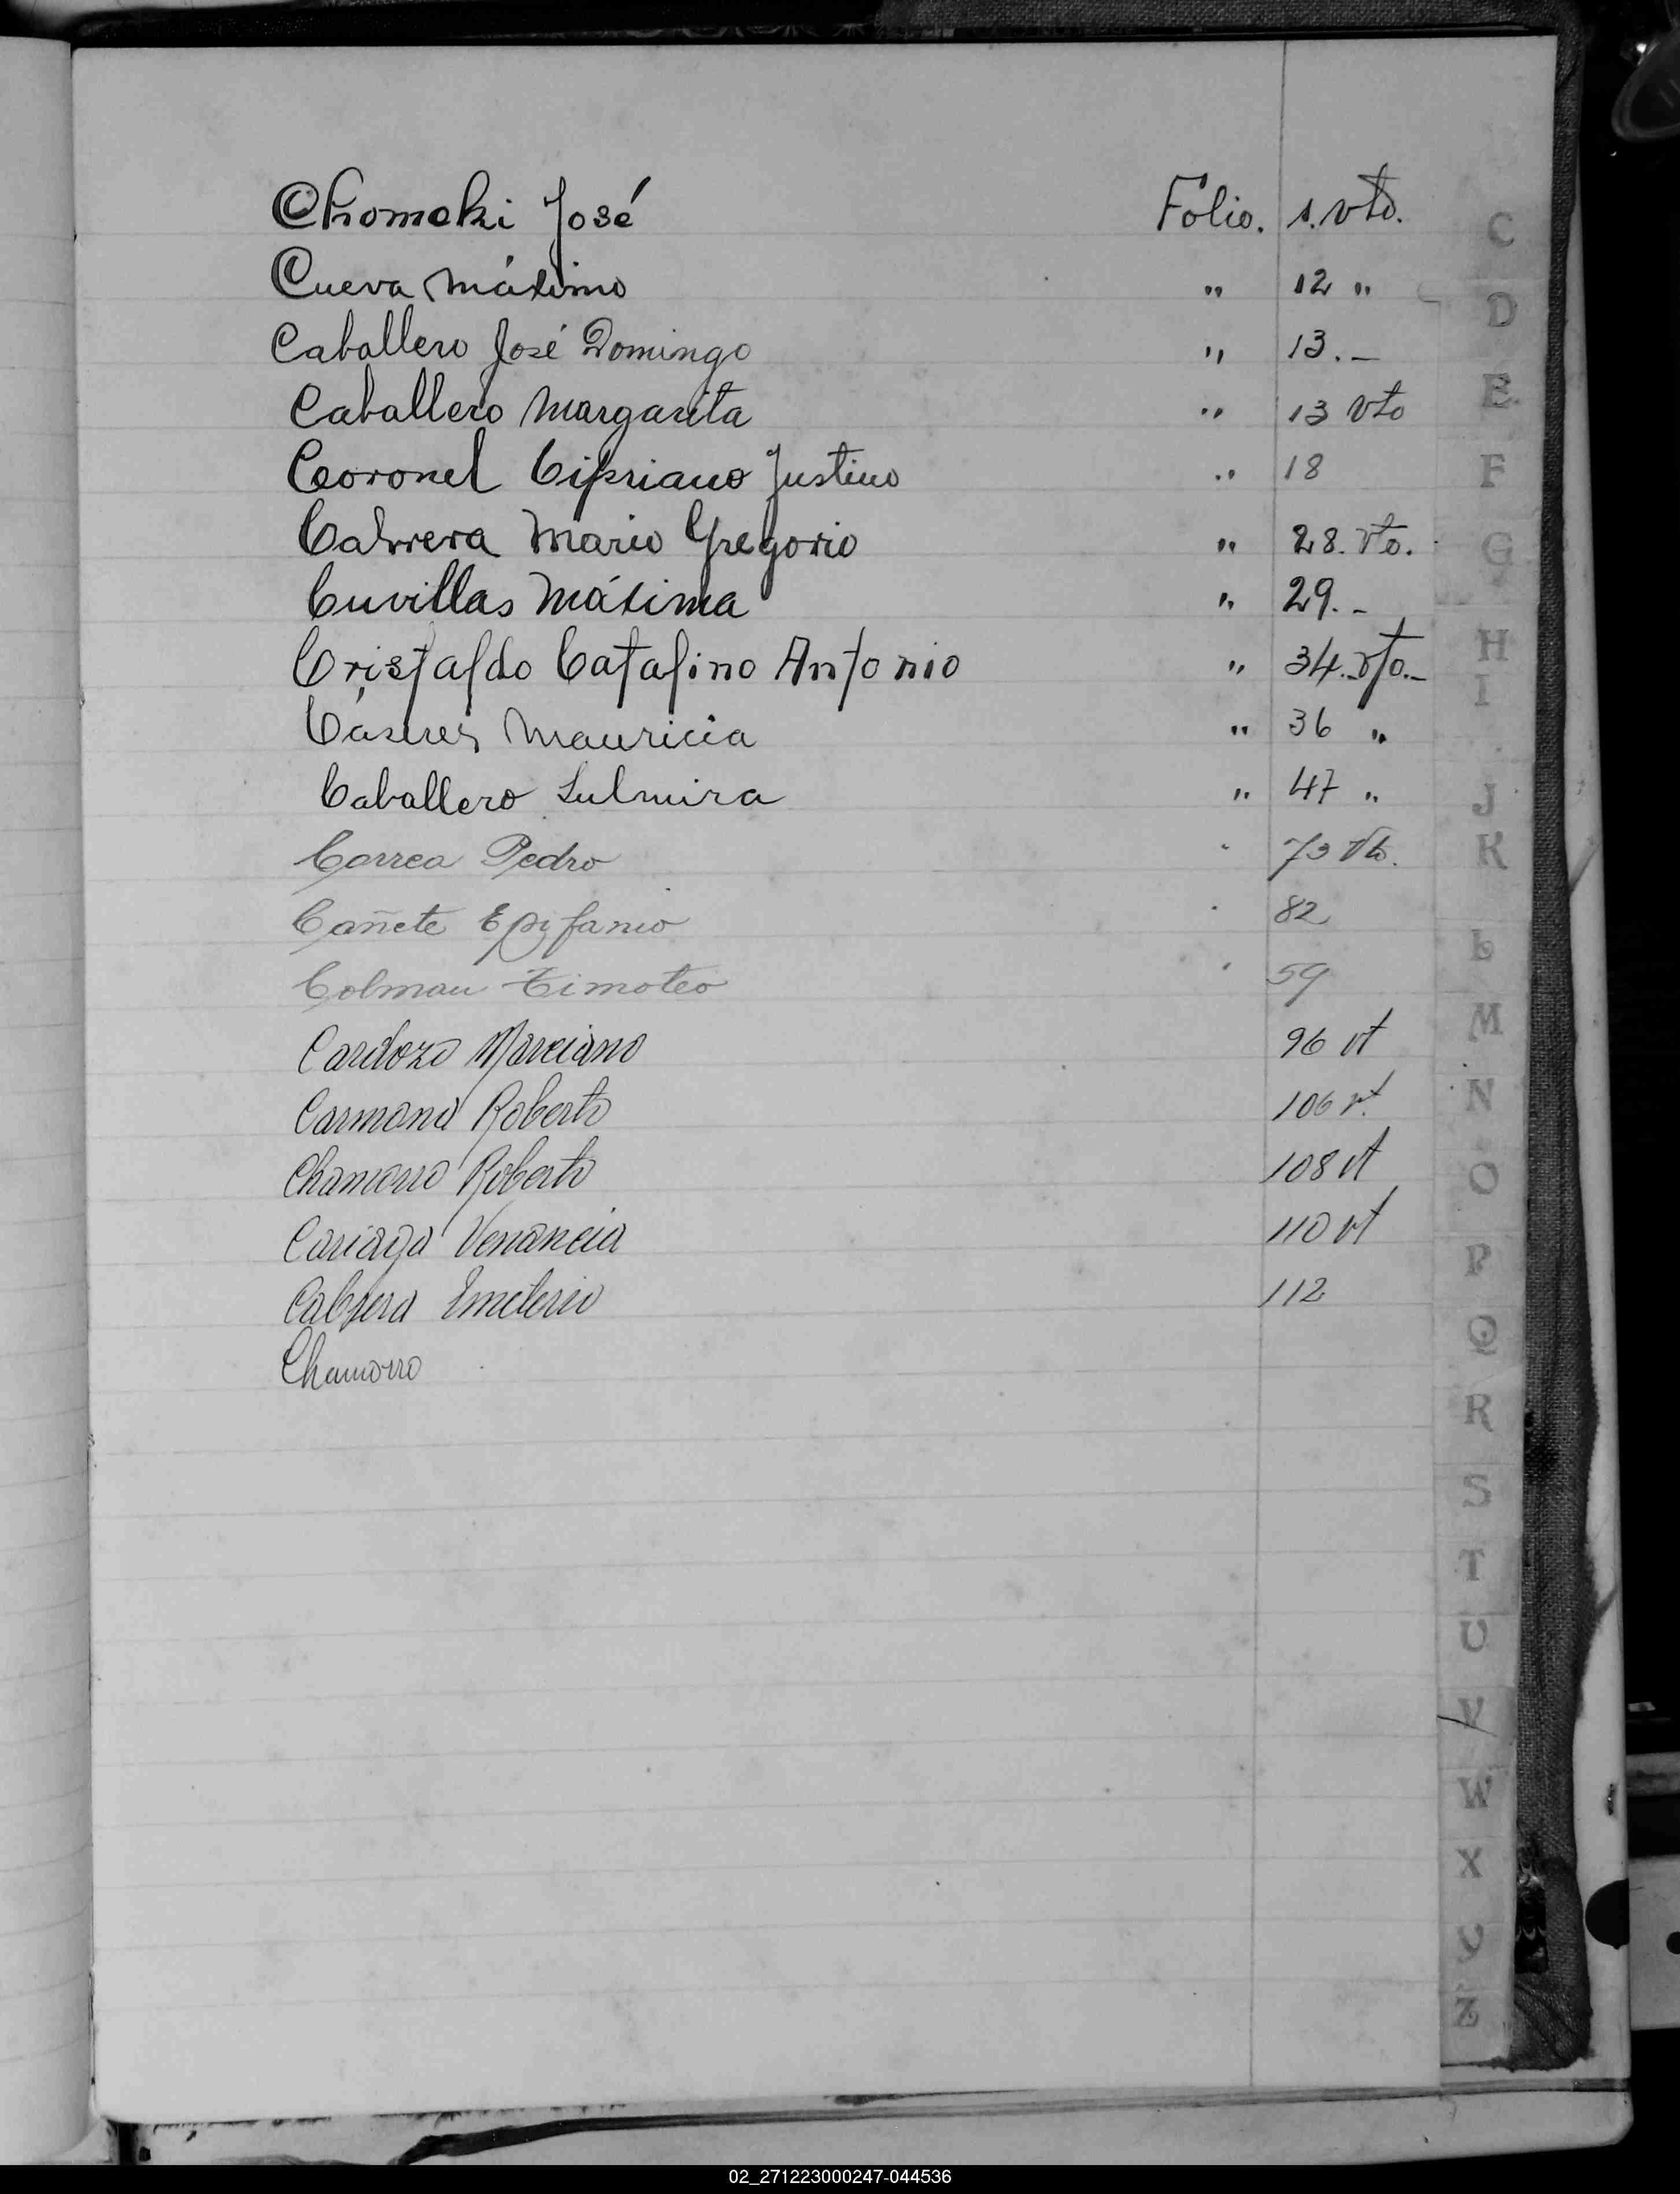 Chomcki José Folio. 1. vto.
Cueva Máximo " 12 "
Caballero José Domingo " 13.-
Caballero Margarita " 13 vto
Coronel Cipriano Justino " 18
Cabrera Mario Gregorio " 28. vto.
Cuvillas Máxima " 29.-
Cristaldo Catalino Antonio " 34. vto.-
Mauricia " 36 "
Caballero Lulmira " 47 "
Correa Pedro " 73 vto.
Cañete Epifanio " 82
Colman Timoteo " 59
Cardozo Marciano 96 vt
Carmona Roberto 106 vt.
Chamorro Roberto 108 vt
Cariaga Venancia 110 vt
Cabrera Emeterio 112
Chamorro
C
D
E
F
G
H
I
J
K
L
M
N
O
P
Q
R
S
T
U
V
W
X
Y
Z
02_271223000247-044536